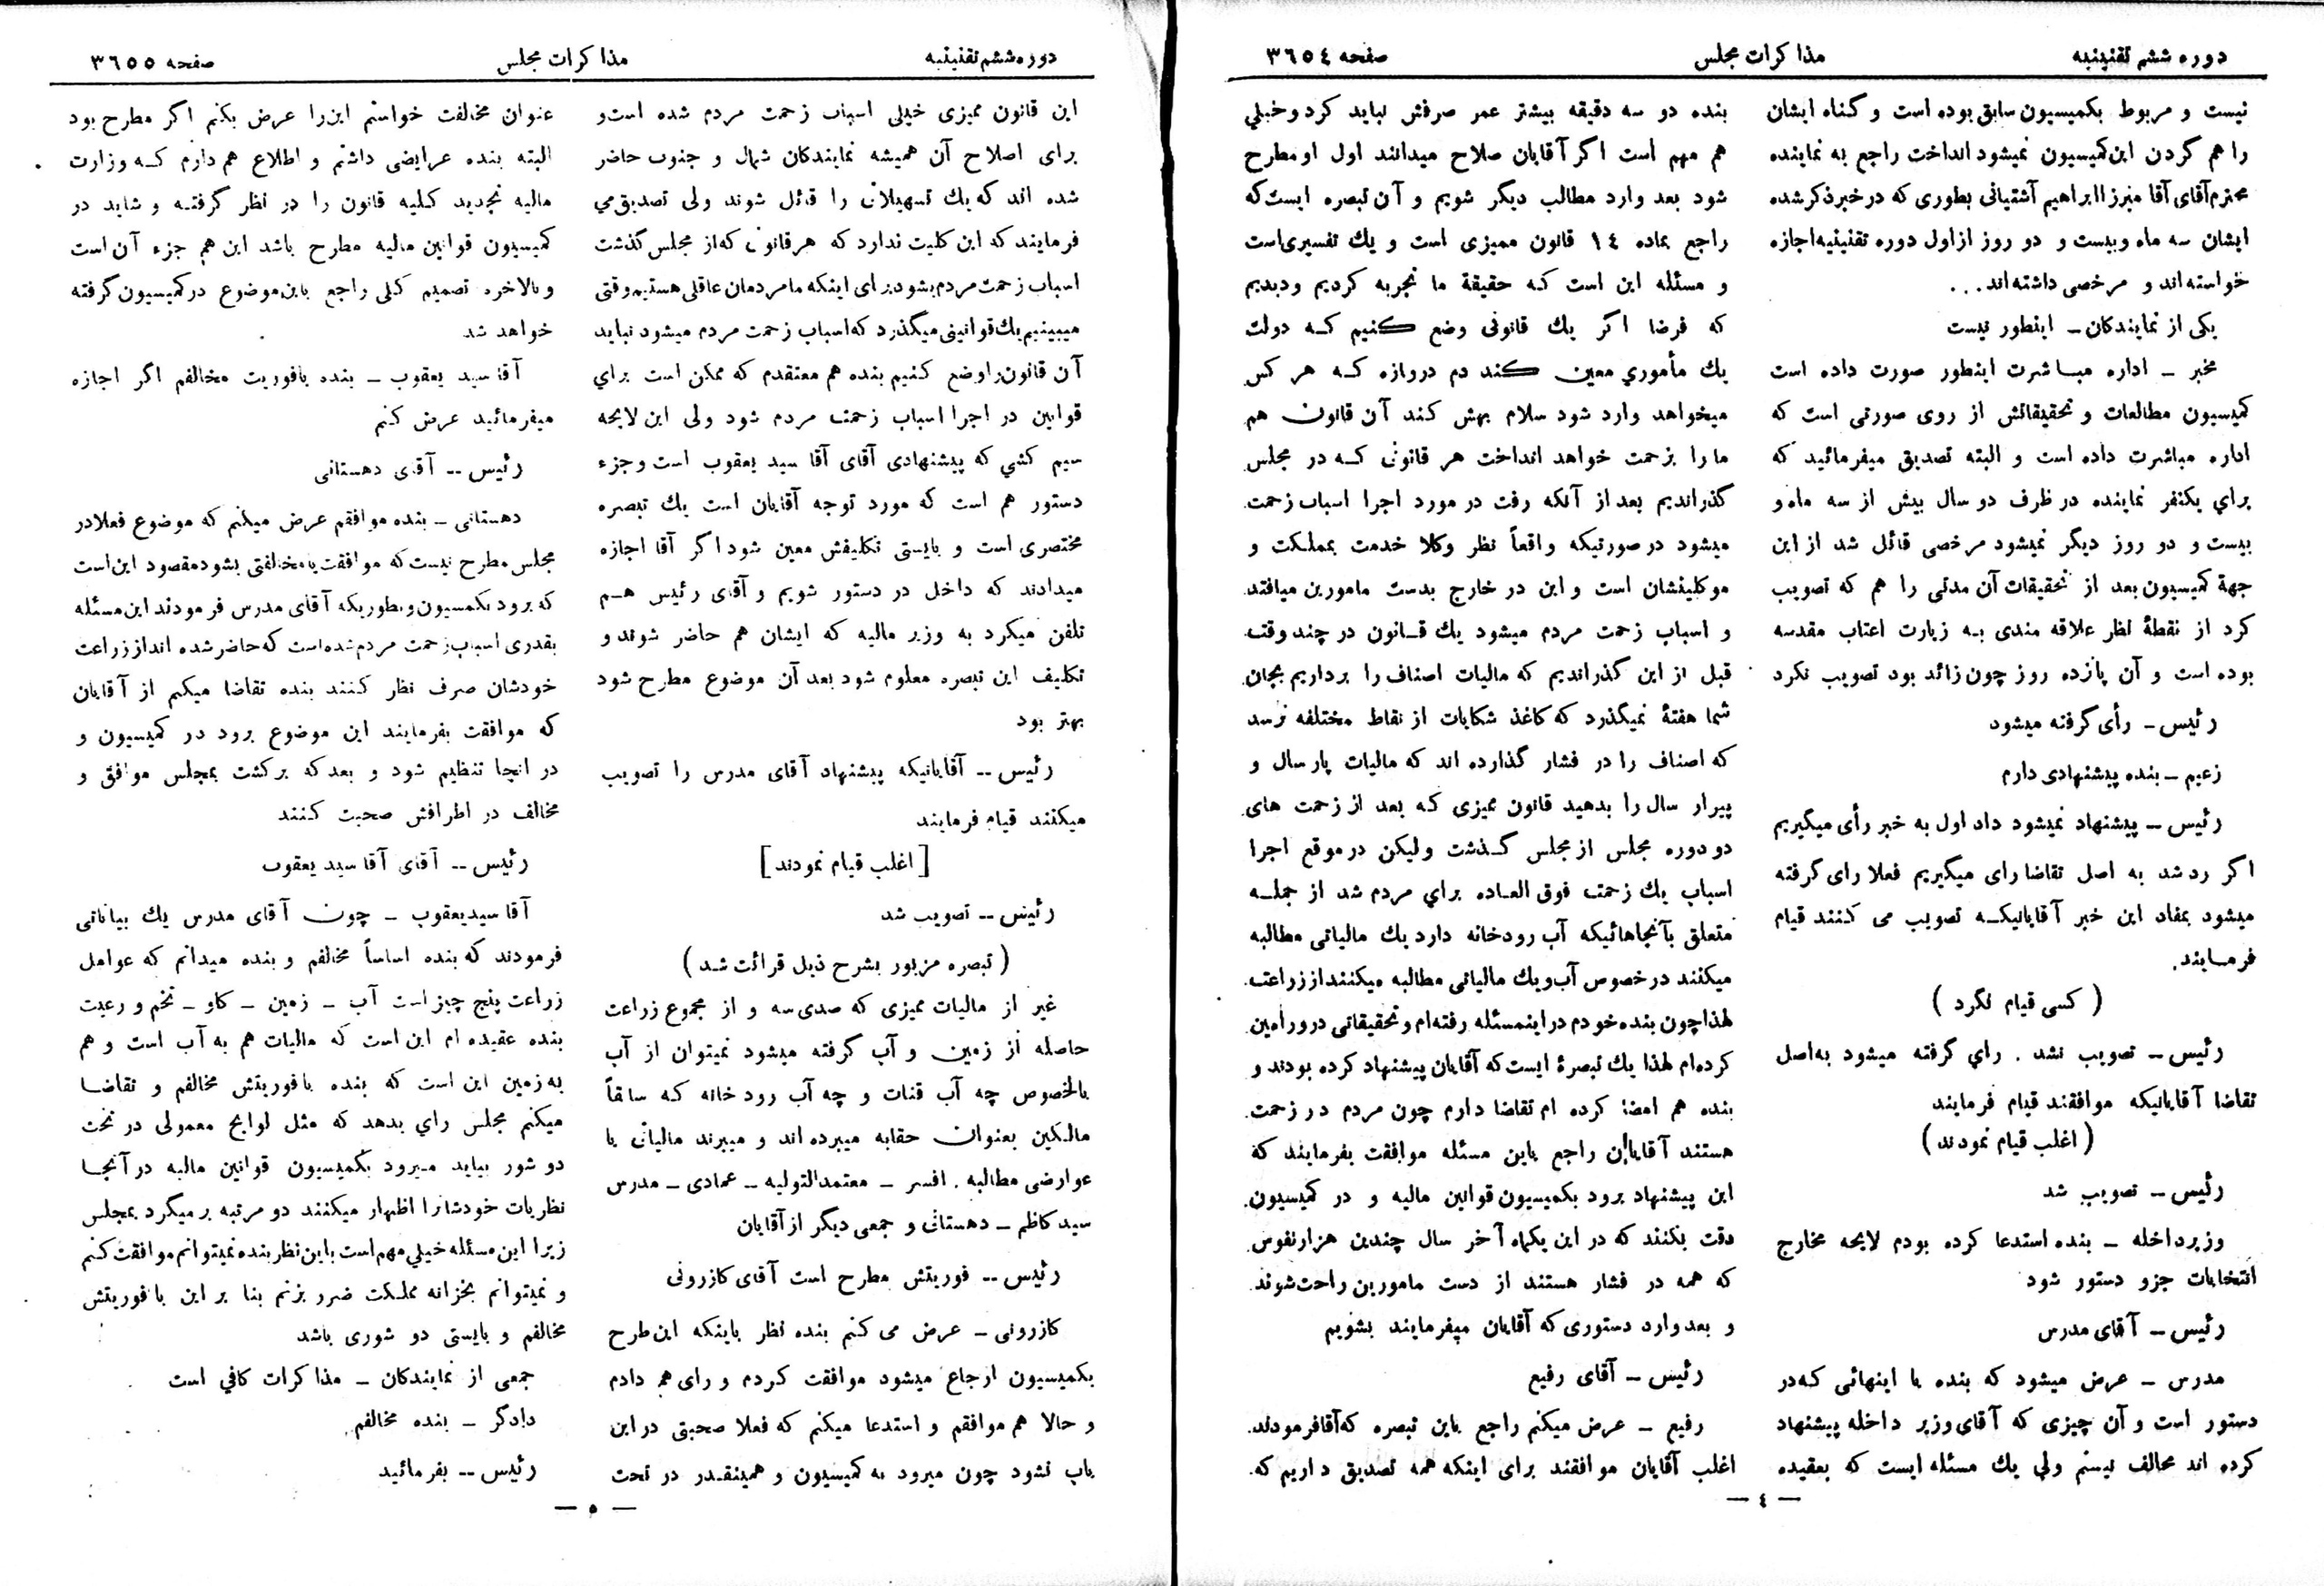 دوره ششم تقنینیه
مذاکرات مجلس
صفحه ٣٦٥٤
نیست و مربوط بکمیسیون سابق بوده است و گناه ایشان
را هم گردن این کمیسیون نمیشود انداخت راجع به نماینده
محترم آقای آقا میرزا ابراهیم آشتیانی بطوری که در خبر ذکر شده
ایشان سه ماه و بیست و دو روز از اول دوره تقنینیه اجازه
خواسته‌اند و مرخصی داشته‌اند...
یکی از نمایندگان ـ اینطور نیست
مخبر ـ اداره مباشرت اینطور صورت داده است
کمیسیون مطالعات و تحقیقاتش از روی صورتی است که
اداره مباشرت داده است و البته تصدیق میفرمائید که
برای یکنفر نماینده در ظرف دو سال بیش از سه ماه و
بیست و دو روز دیگر نمیشود مرخصی قائل شد از این
جهة کمیسیون بعد از تحقیقات آن مدتی را هم که تصویب
کرد از نقطهٔ نظر علاقه مندی به زیارت اعتاب مقدسه
بوده است و آن پازده روز چون زائد بود تصویب نکرد
رئیس ـ رأی گرفته میشود
زعیم ـ بنده پیشنهادی دارم
رئیس ـ پیشنهاد نمیشود داد اول به خبر رأی میگیریم
اگر رد شد به اصل تقاضا رای میگیریم فعلا رای گرفته
میشود بمفاد این خبر آقایانیکه تصویب می کنند قیام
فرمایند.
( کسی قیام نکرد )
رئیس ـ تصویب نشد . رای گرفته میشود به اصل
تقاضا آقایانیکه موافقند قیام فرمایند
( اغلب قیام نمودند )
رئیس ـ تصویب شد
وزیر داخله ـ بنده استدعا کرده بودم لایحه مخارج
انتخابات جزو دستور شود
رئیس ـ آقای مدرس
مدرس ـ عرض میشود که بنده با اینهائی که در
دستور است و آن چیزی که آقای وزیر داخله پیشنهاد
کرده اند مخالف نیستم ولی یك مسئله ایست که بعقیده
بنده دو سه دقیقه بیشتر عمر صرفش نباید کرد و خیلی
هم مهم است اگر آقایان صلاح میدانند اول او مطرح
شود بعد وارد مطالب دیگر شویم و آن تبصره ایست که
راجع بماده ١٤ قانون ممیزی است و یك تفسیری است
و مسئله این است که حقیقة ما تجربه کردیم و دیدیم
که فرضا اگر یك قانونی وضع کنیم که دولت
یك مأموری معین کند دم دروازه که هر کس
میخواهد وارد شود سلام بهش کند آن قانون هم
ما را بزحمت خواهد انداخت هر قانونی که در مجلس
گذراندیم بعد از آنکه رفت در مورد اجرا اسباب زحمت
میشود در صورتیکه واقعاً نظر وکلا خدمت بمملکت و
موکلینشان است و این در خارج بدست مامورین میافتد
و اسباب زحمت مردم میشود یك قانون در چند وقت
قبل از این گذراندیم که مالیات اصناف را برداریم بجان
شما هفتهٔ نمیگذرد که کاغذ شکایات از نقاط مختلفه نرسد
که اصناف را در فشار گذارده اند که مالیات پارسال و
پیرار سال را بدهید قانون ممیزی که بعد از زحمت های
دو دوره مجلس از مجلس گذشت ولیکن در موقع اجرا
اسباب یك زحمت فوق العاده برای مردم شد از جمله
متعلق بآنجاهائیکه آب رودخانه دارد یك مالیاتی مطالبه
میکنند در خصوص آب و یك مالیاتی مطالبه میکنند از زراعت
لهذا چون بنده خودم در اینمسئله رفته‌ام و تحقیقاتی در ورامین
کرده‌ام لهذا یك تبصرهٔ ایست که آقایان پیشنهاد کرده بودند و
بنده هم امضا کرده ام تقاضا دارم چون مردم در زحمت
هستند آقایان راجع باین مسئله موافقت بفرمایند که
این پیشنهاد برود بکمیسیون قوانین مالیه و در کمیسیون
دقت بکنند که در این یکماه آخر سال چندین هزار نفوس
که همه در فشار هستند از دست مامورین راحت شوند
و بعد وارد دستوری که آقایان میفرمایند بشویم
رئیس ـ آقای رفیع
رفیع ـ عرض میکنم راجع باین تبصره که آقا فرمودند
اغلب آقایان موافقند برای اینکه همه تصدیق داریم که
— ٤ —
دوره ششم تقنینیه
مذاکرات مجلس
صفحه ٣٦٥٥
این قانون ممیزی خیلی اسباب زحمت مردم شده است و
برای اصلاح آن همیشه نمایندگان شمال و جنوب حاضر
شده اند که یك تسهیلاتی را قائل شوند ولی تصدیق می
فرمایند که این کلیت ندارد که هر قانونی که از مجلس گذشت
اسباب زحمت مردم بشود برای اینکه ما مردمان عاقلی هستیم وقتی
میبینیم یك قوانینی میگذرد که اسباب زحمت مردم میشود نباید
آن قانون را وضع کنیم بنده هم معتقدم که ممکن است برای
قوانین در اجرا اسباب زحمت مردم شود ولی این لایحه
سیم کشی که پیشنهادی آقای آقا سید یعقوب است و جزء
دستور هم است که مورد توجه آقایان است یك تبصره
مختصری است و بایستی تکلیفش معین شود اگر آقا اجازه
میدادند که داخل در دستور شویم و آقای رئیس هم
تلفن میکرد به وزیر مالیه که ایشان هم حاضر شوند و
تکلیف این تبصره معلوم شود بعد آن موضوع مطرح شود
بهتر بود
رئیس ـ آقایانیکه پیشنهاد آقای مدرس را تصویب
میکنند قیام فرمایند
[ اغلب قیام نمودند ]
رئیس ـ تصویب شد
( تبصره مزبور بشرح ذیل قرائت شد )
غیر از مالیات ممیزی که صدی سه و از مجموع زراعت
حاصله از زمین و آب گرفته میشود نمیتوان از آب
بالخصوص چه آب قنات و چه آب رودخانه که سابقاً
مالکین بعنوان حقابه میبرده اند و میبرند مالیاتی یا
عوارضی مطالبه . افسر ـ معتمدالتولیه ـ عمادی ـ مدرس
سید کاظم ـ دهستانی و جمعی دیگر از آقایان
رئیس ـ فوریتش مطرح است آقای کازرونی
کازرونی ـ عرض می کنم بنده نظر باینکه این طرح
بکمیسیون ارجاع میشود موافقت کردم و رای هم دادم
و حالا هم موافقم و استدعا میکنم که فعلا صحبتی در این
باب نشود چون میرود به کمیسیون و همینقدر در تحت
عنوان مخالفت خواستم این را عرض بکنم اگر مطرح بود
البته بنده عرایضی داشتم و اطلاع هم دارم که وزارت
مالیه تجدید کلیه قانون را در نظر گرفته و شاید در
کمیسیون قوانین مالیه مطرح باشد این هم جزء آن است
و بالاخره تصمیم کلی راجع باین موضوع در کمیسیون گرفته
خواهد شد
آقا سید یعقوب ـ بنده بافوریت مخالفم اگر اجازه
میفرمائید عرض کنم
رئیس ـ آقای دهستانی
دهستانی ـ بنده موافقم عرض میکنم که موضوع فعلا در
مجلس مطرح نیست که موافقت یا مخالفتی بشود مقصود این است
که برود بکمسیون و بطوریکه آقای مدرس فرمودند این مسئله
بقدری اسباب زحمت مردم شده است که حاضر شده اند از زراعت
خودشان صرف نظر کنند بنده تقاضا میکنم از آقایان
که موافقت بفرمایند این موضوع برود در کمیسیون و
در انجا تنظیم شود و بعد که برگشت بمجلس موافق و
مخالف در اطرافش صحبت کنند
رئیس ـ آقای آقا سید یعقوب
آقا سید یعقوب ـ چون آقای مدرس یك بیاناتی
فرمودند که بنده اساساً مخالفم و بنده میدانم که عوامل
زراعت پنج چیز است آب ـ زمین ـ گاو ـ تخم و رعیت
بنده عقیده ام این است که مالیات هم به آب است و هم
به زمین این است که بنده بافوریتش مخالفم و تقاضا
میکنم مجلس رای بدهد که مثل لوایح معمولی در تحت
دو شور بیاید میرود بکمیسیون قوانین مالیه در آنجا
نظریات خودشانرا اظهار میکنند دو مرتبه برمیگرد بمجلس
زیرا این مسئله خیلی مهم است باین نظر بنده نمیتوانم موافقت کنم
و نمیتوانم بخزانه مملکت ضرر بزنم بنا بر این با فوریتش
مخالفم و بایستی دو شوری باشد
جمعی از نمایندگان ـ مذاکرات کافی است
دادگر ـ بنده مخالفم.
رئیس ـ بفرمائید
— ٥ —